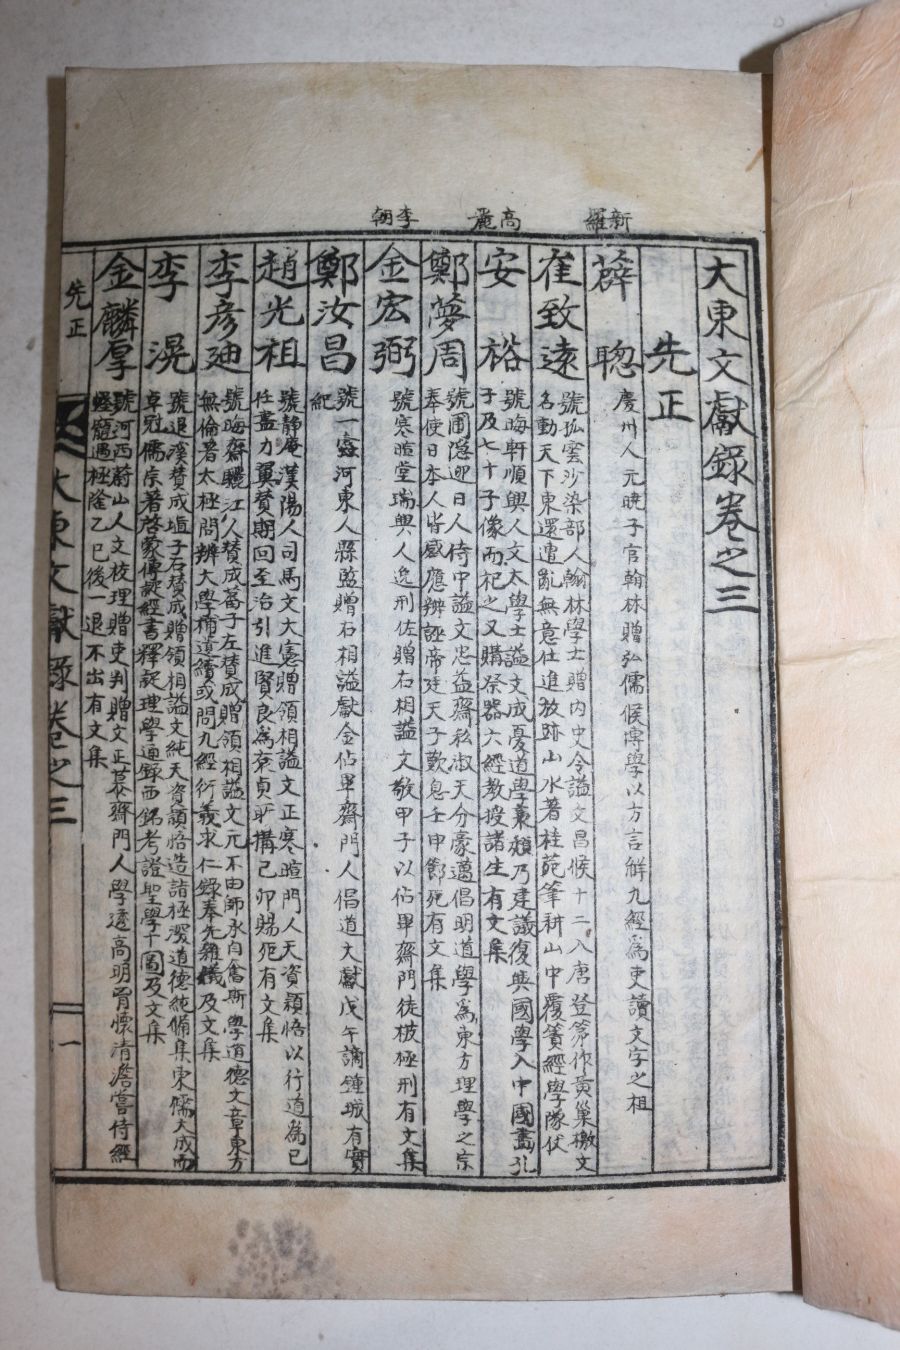 新羅
高麗
李朝
大東文獻錄卷之三
先正
薛聰 慶州人元曉子官翰林贈弘儒侯博學以方言解九經爲吏讀文字之祖
崔致遠 號孤雲沙梁部人翰林學士贈內史令謚文昌侯十二入唐登第作黃巢檄文
名動天下東還遭亂無意仕進放跡山水著桂苑筆耕山中覆簣經學隊仗
安裕 號晦軒順興人文太學士謚文成憂道學衰賴乃建議復興國學入中國畵孔
子及七十子像而祀之又購祭器六經敎授諸生有文集
鄭夢周 號圃隱迎日人侍中謚文忠益齋私淑天分豪邁倡明道學爲東方理學之宗
奉使日本人皆感應辨誣帝廷天子歎息壬申節死有文集
金宏弼 號寒暄堂瑞興人逸刑佐贈右相謚文敬甲子以佔畢齋門徒被極刑有文集
鄭汝昌 號一蠹河東人縣監贈右相謚獻金佔畢齋門人倡道文獻戊午謫鍾城有實
紀
趙光祖 號靜庵漢陽人司馬文大憲贈領相謚文正寒暄門人天資穎悟以行道爲己
任盡力翼贊期回至治引進賢良爲袞貞所搆己卯賜死有文集
李彦迪 號晦齋驪江人贊成蕃子左贊成贈領相謚文元不由師承自奮斯學道德文章東方
無倫著太極問辨大學補遺續或問九經衍義求仁錄奉先雜儀及文集
李滉 號退溪贊成埴子右贊成贈領相謚文純天資穎悟造詣極深道德純備集東儒大成而
卓冠儒宗著啓蒙傳疑經書釋疑理學通錄西銘考證聖學十圖及文集
金麟厚 號河西蔚山人文校理贈吏判贈文正慕齋門人學透高明胷懷清澹嘗侍經
遇極隆乙巳後一退不出有文集
先正
大東文獻錄卷之三
一